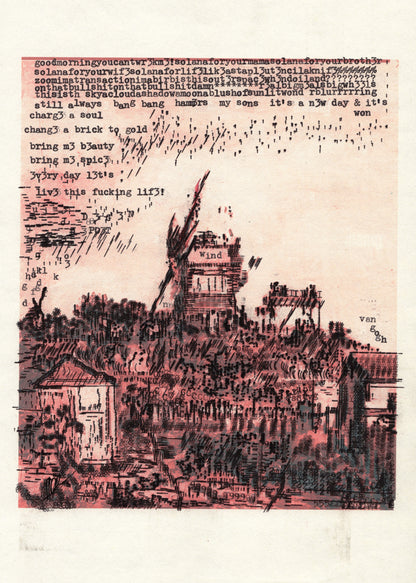 goodmorningyoucantwr3km3!solanaforyourmamasolanaforyourbroth3r
solanaforyourwif3solanaforlif3lik3astapl3ut3ncilaknif3
zoomimatransactionimabirbisthisout3rspac3wh3ndoiland????????
onthatbullshitonthatbullshitdamn********f3albigm3alsbigwh33ls
thisisth skyacloudashadowamoonablushofsunlitwond rblurrrrring
still always bang bang ham3rs my sons it's a n3w day & it's
charg3 a soul won
chang3 a brick to gold
bring m3 b3auty
bring m3 spic3
3v3ry day l3t's
liv3 this fucking lif3!
D 3 3 P
3PORT
wind
van
gogh